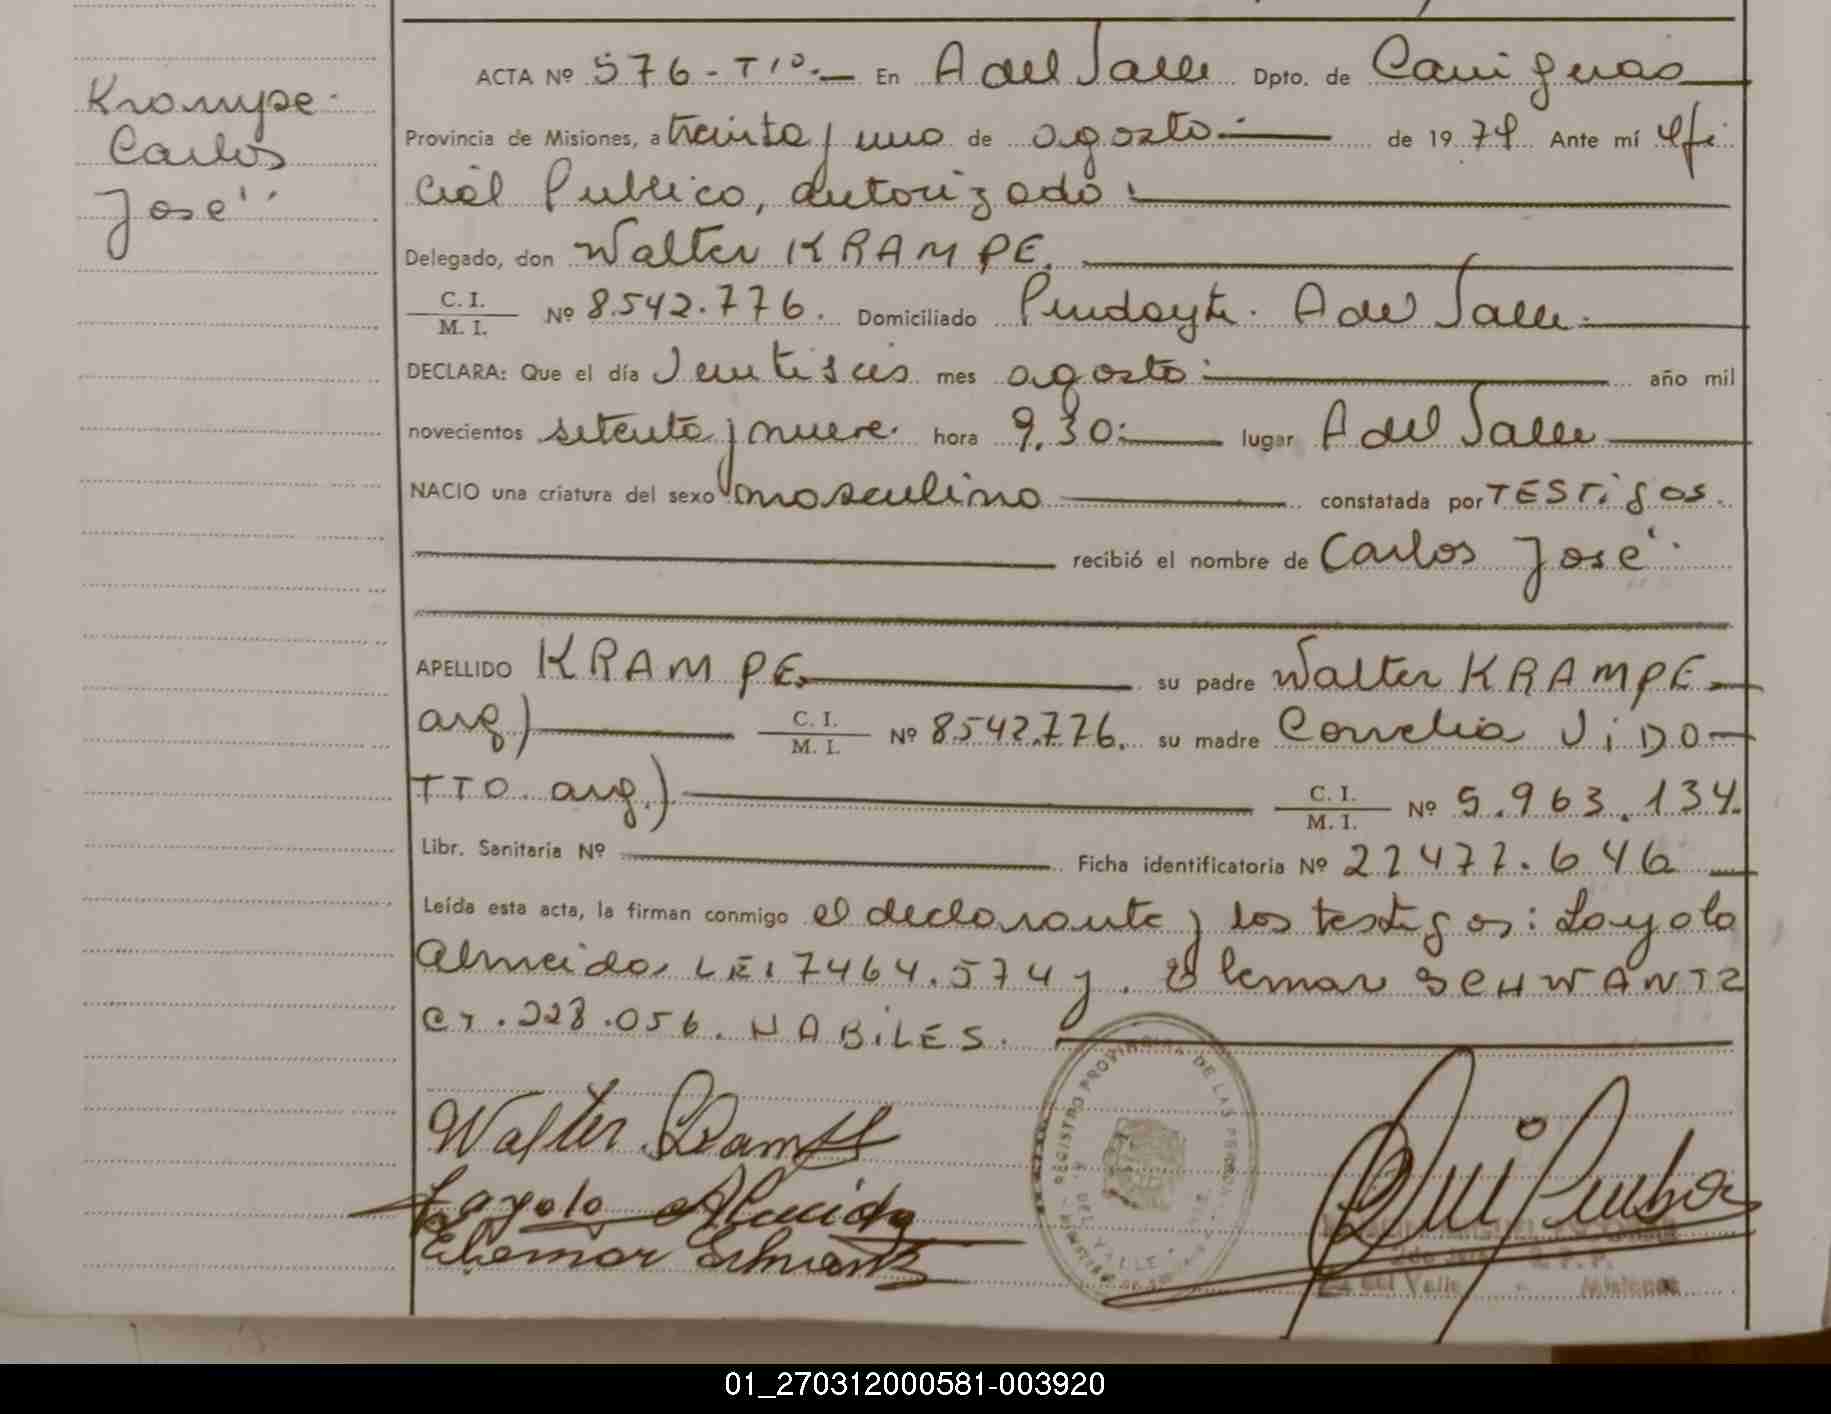 Krampe
Carlos
José
ACTA Nº 576-Tº En A del Valle Dpto. de Cainguas
Provincia de Misiones, a treinta y uno de agosto de 19 79 Ante mí Ofi
cial Publico, autorizado:
Delegado, don Walter KRAMPE.
C. I.
M. I. Nº 8.542.776. Domiciliado Pindayti. A del Valle.
DECLARA: Que el día Veintiseis mes agosto: año mil
novecientos setenta y nueve. hora 9.30: lugar A del Valle
NACIO una criatura del sexo masculino constatada por TESTigos.
recibió el nombre de Carlos José
APELLIDO KRAMPE su padre Walter KRAMPE
arg) C. I.
M. I. Nº 8.542.776. su madre Cornelia ViDO-
TTO. arg.) C. I.
M. I. Nº 5.963.134.
Libr. Sanitaria Nº Ficha identificatoria Nº 27.477.646
Leída esta acta, la firman conmigo el declarante y los testigos: Loyola
Almeida LE: 7464.574 y. Elemar SCHWANTZ
CI. 228.056. HABiLES.
Walter
Loyola Almeida
Elemar Schwantz
REGISTRO PROVINCIAL DE LAS PERSONAS
DEL VALLE
del Valle - Misiones
01_270312000581-003920